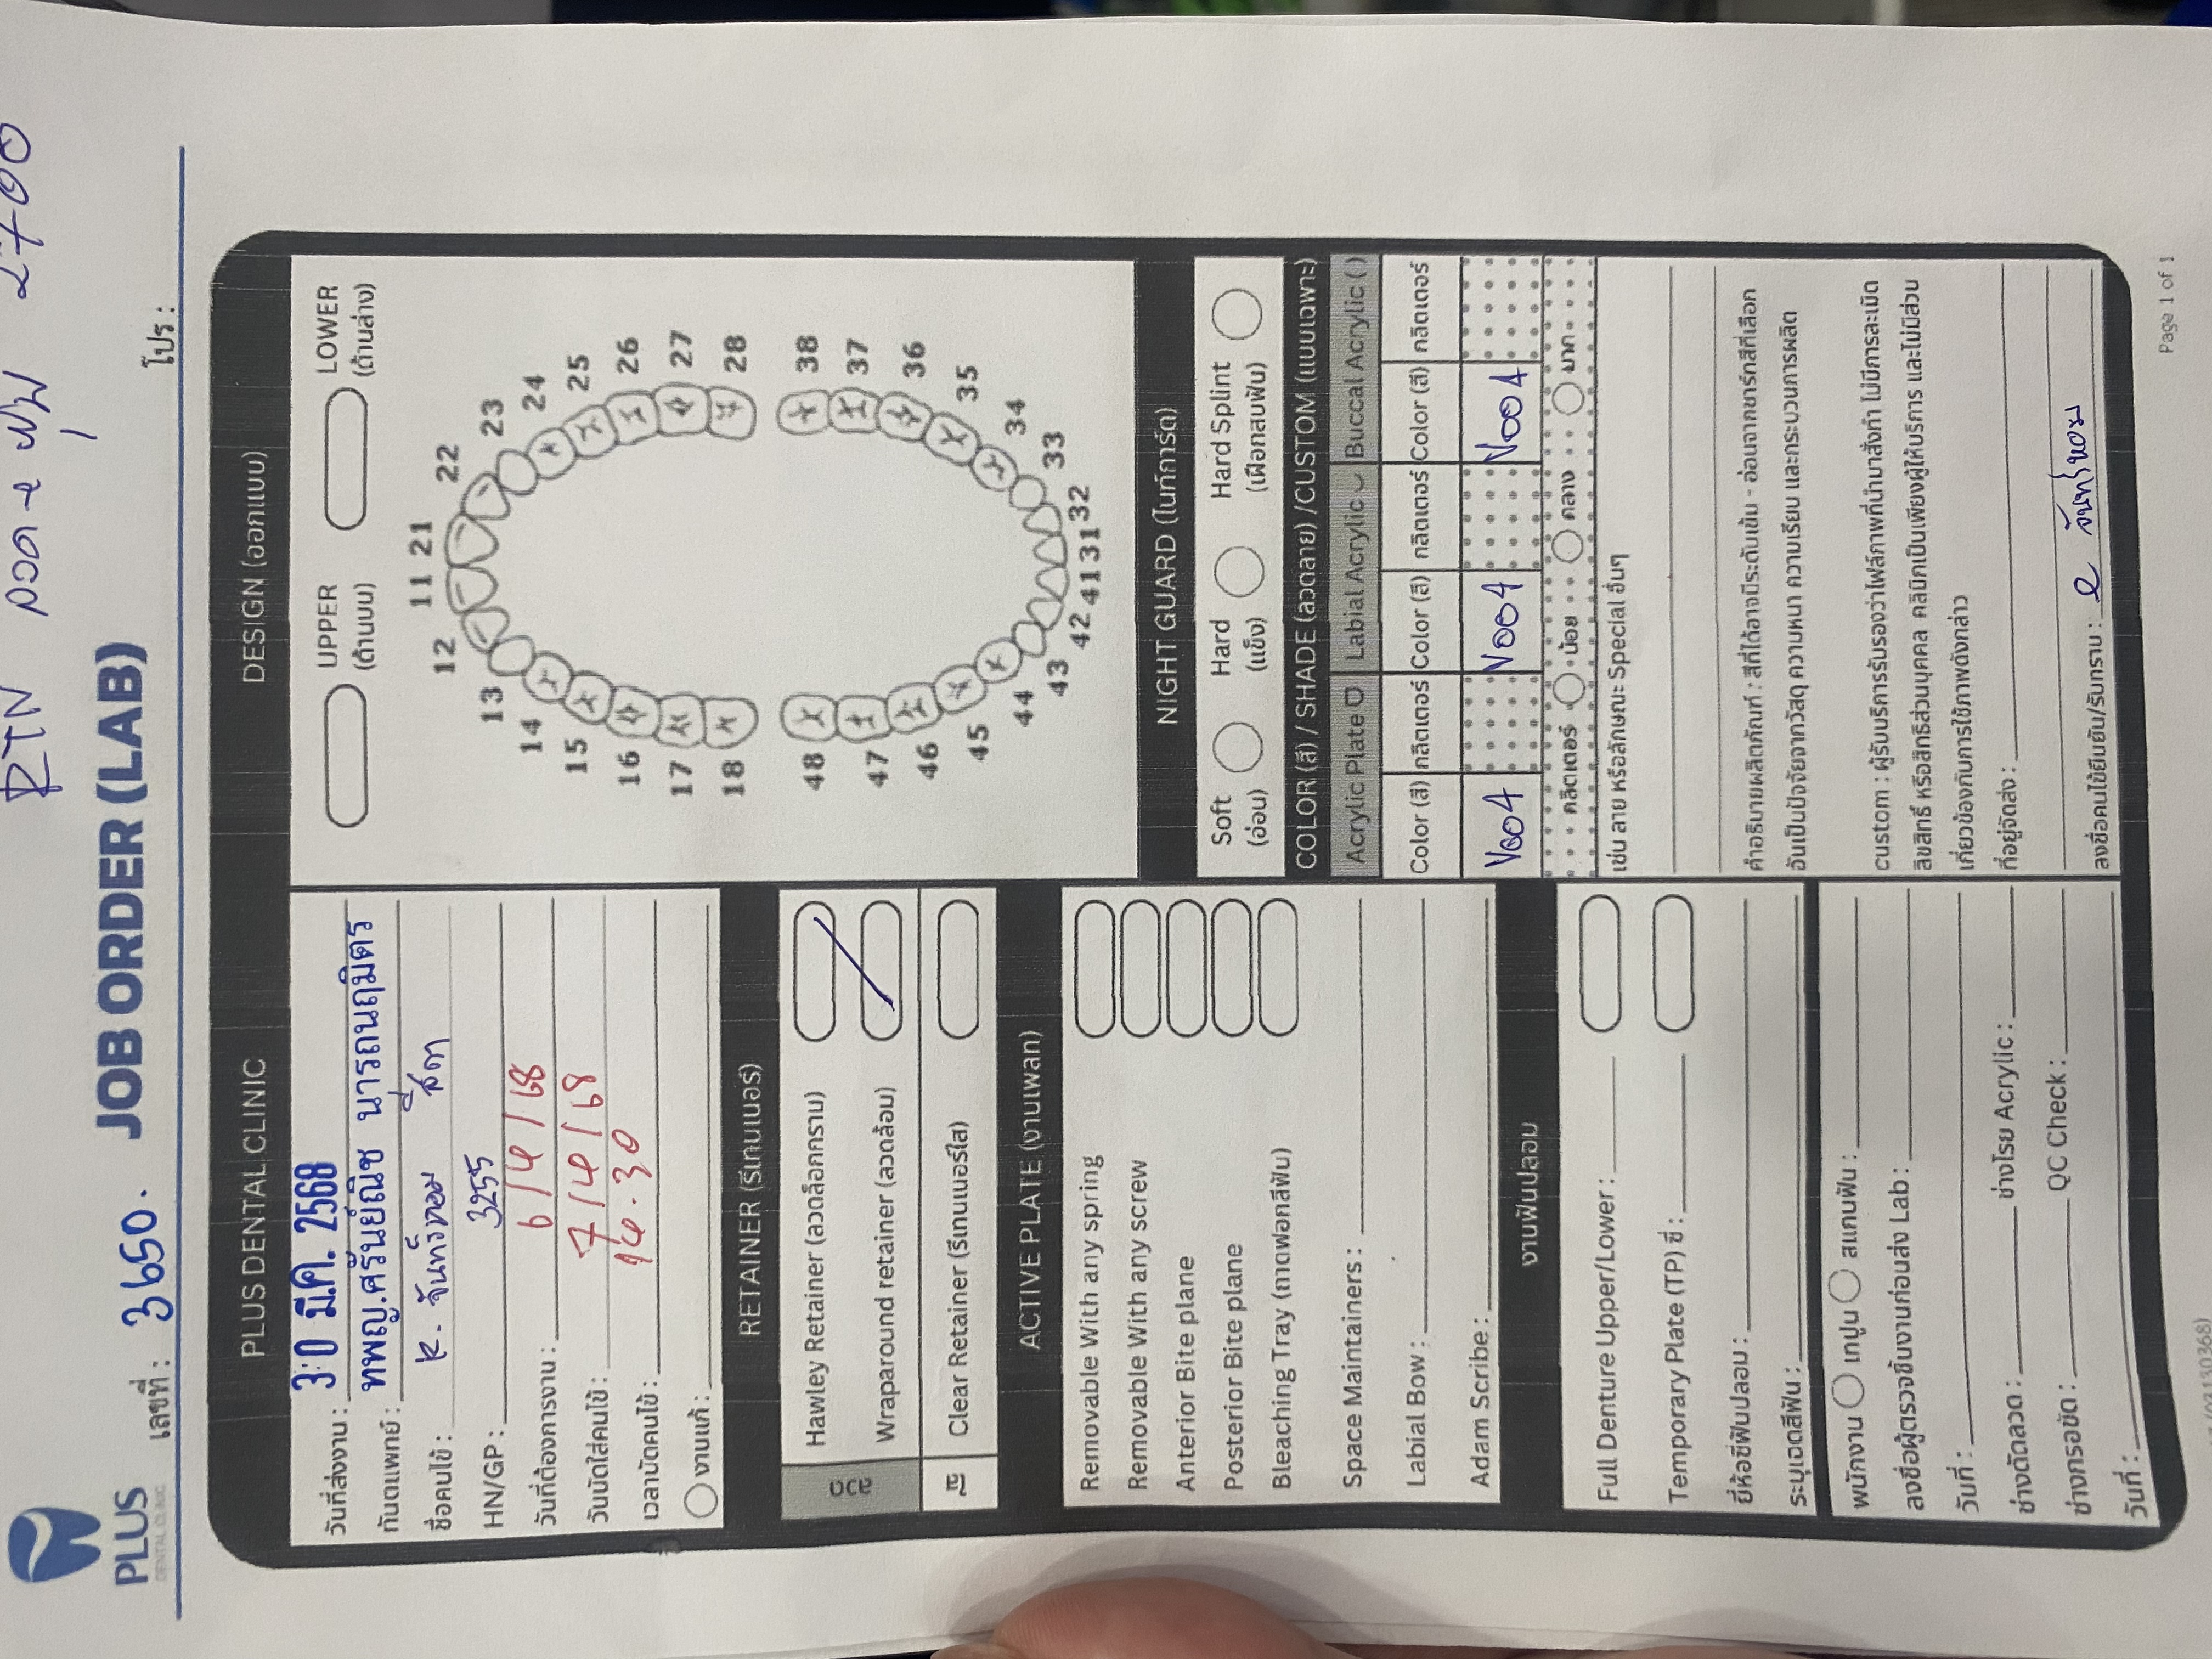 RTN ลวด
2700
PLUS
DENTAL CLINIC
เลขที่ : 3650.
JOB ORDER (LAB)
โปร :
PLUS DENTAL CLINIC
วันที่ส่งงาน : 30 มี.ค. 2568
ทันตแพทย์ : ทพญ.ศรันย์ณิช นารถนฤมิตร
ชื่อคนไข้ : K. จันทร์หอม สีดา
HN/GP : 3255
วันที่ต้องการงาน : 6/4/68
วันนัดใส่คนไข้ : 7/4/68
เวลานัดคนไข้ : 14.30
งานแก้ :
RETAINER (รีเทนเนอร์)
ลวด
Hawley Retainer (ลวดล็อกกราม)
Wraparound retainer (ลวดล้อม)
ใส
Clear Retainer (รีเทนเนอร์ใส)
ACTIVE PLATE (งานเพลท)
Removable With any spring
Removable With any screw
Anterior Bite plane
Posterior Bite plane
Bleaching Tray (ถาดฟอกสีฟัน)
Space Maintainers :
Labial Bow :
Adam Scribe :
งานฟันปลอม
Full Denture Upper/Lower :
Temporary Plate (TP) ซี่ :
ยี่ห้อซี่ฟันปลอม :
ระบุเฉดสีฟัน :
พนักงาน เทปูน สแกนฟัน :
ลงชื่อผู้ตรวจชิ้นงานก่อนส่ง Lab :
วันที่ :
ช่างดัดลวด : ช่างโรย Acrylic :
ช่างกรอขัด : QC Check :
วันที่ :
DESIGN (ออกแบบ)
UPPER (ด้านบน) LOWER (ด้านล่าง)
11 21
12 22
13 23
14 24
15 25
16 26
17 27
18 28
48 38
47 37
46 36
45 35
44 34
43 33
42 41 31 32
NIGHT GUARD (ไนท์การ์ด)
Soft (อ่อน) Hard (แข็ง) Hard Splint (เฝือกสบฟัน)
COLOR (สี) / SHADE (ลวดลาย) /CUSTOM (แบบเฉพาะ)
Acrylic Plate Labial Acrylic Buccal Acrylic ( )
Color (สี) กลิตเตอร์ Color (สี) กลิตเตอร์ Color (สี) กลิตเตอร์
V004 V004 V004
กลิตเตอร์ น้อย กลาง มาก
เช่น ลาย หรือลักษณะ Special อื่นๆ
คำอธิบายผลิตภัณฑ์ : สีที่ได้อาจมีระดับเข้ม - อ่อนจากชาร์ทสีที่เลือก
อันเป็นปัจจัยจากวัสดุ ความหนา ความเรียบ และกระบวนการผลิต
custom : ผู้รับบริการรับรองว่าไฟล์ภาพที่นำมาสั่งทำ ไม่มีการละเมิด
ลิขสิทธิ์ หรือสิทธิส่วนบุคคล คลินิกเป็นเพียงผู้ให้บริการ และไม่มีส่วน
เกี่ยวข้องกับการใช้ภาพดังกล่าว
ที่อยู่จัดส่ง :
ลงชื่อคนไข้ยืนยัน/รับทราบ : จันทร์หอม
Page 1 of 1
(03130368)